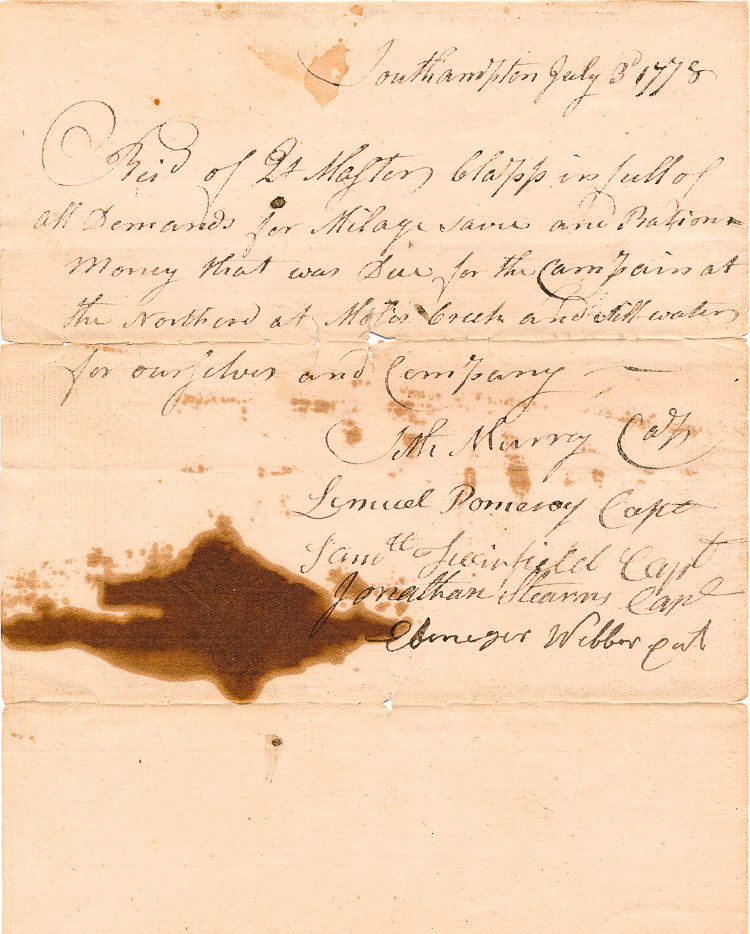 Southampton July 3d 1778
Reid of Qt Master Clapp in full of
all Demands for Milage sauce and Ration
Money that was Due for the Campain at
the Northerd at Moses Creek and Still water
for ourselves and Company
Seth Murray Cap
Lemuel Pomeroy Capt
Samll Fairfield Capt
Jonathan Stearns Capt
Ebenezer Webber